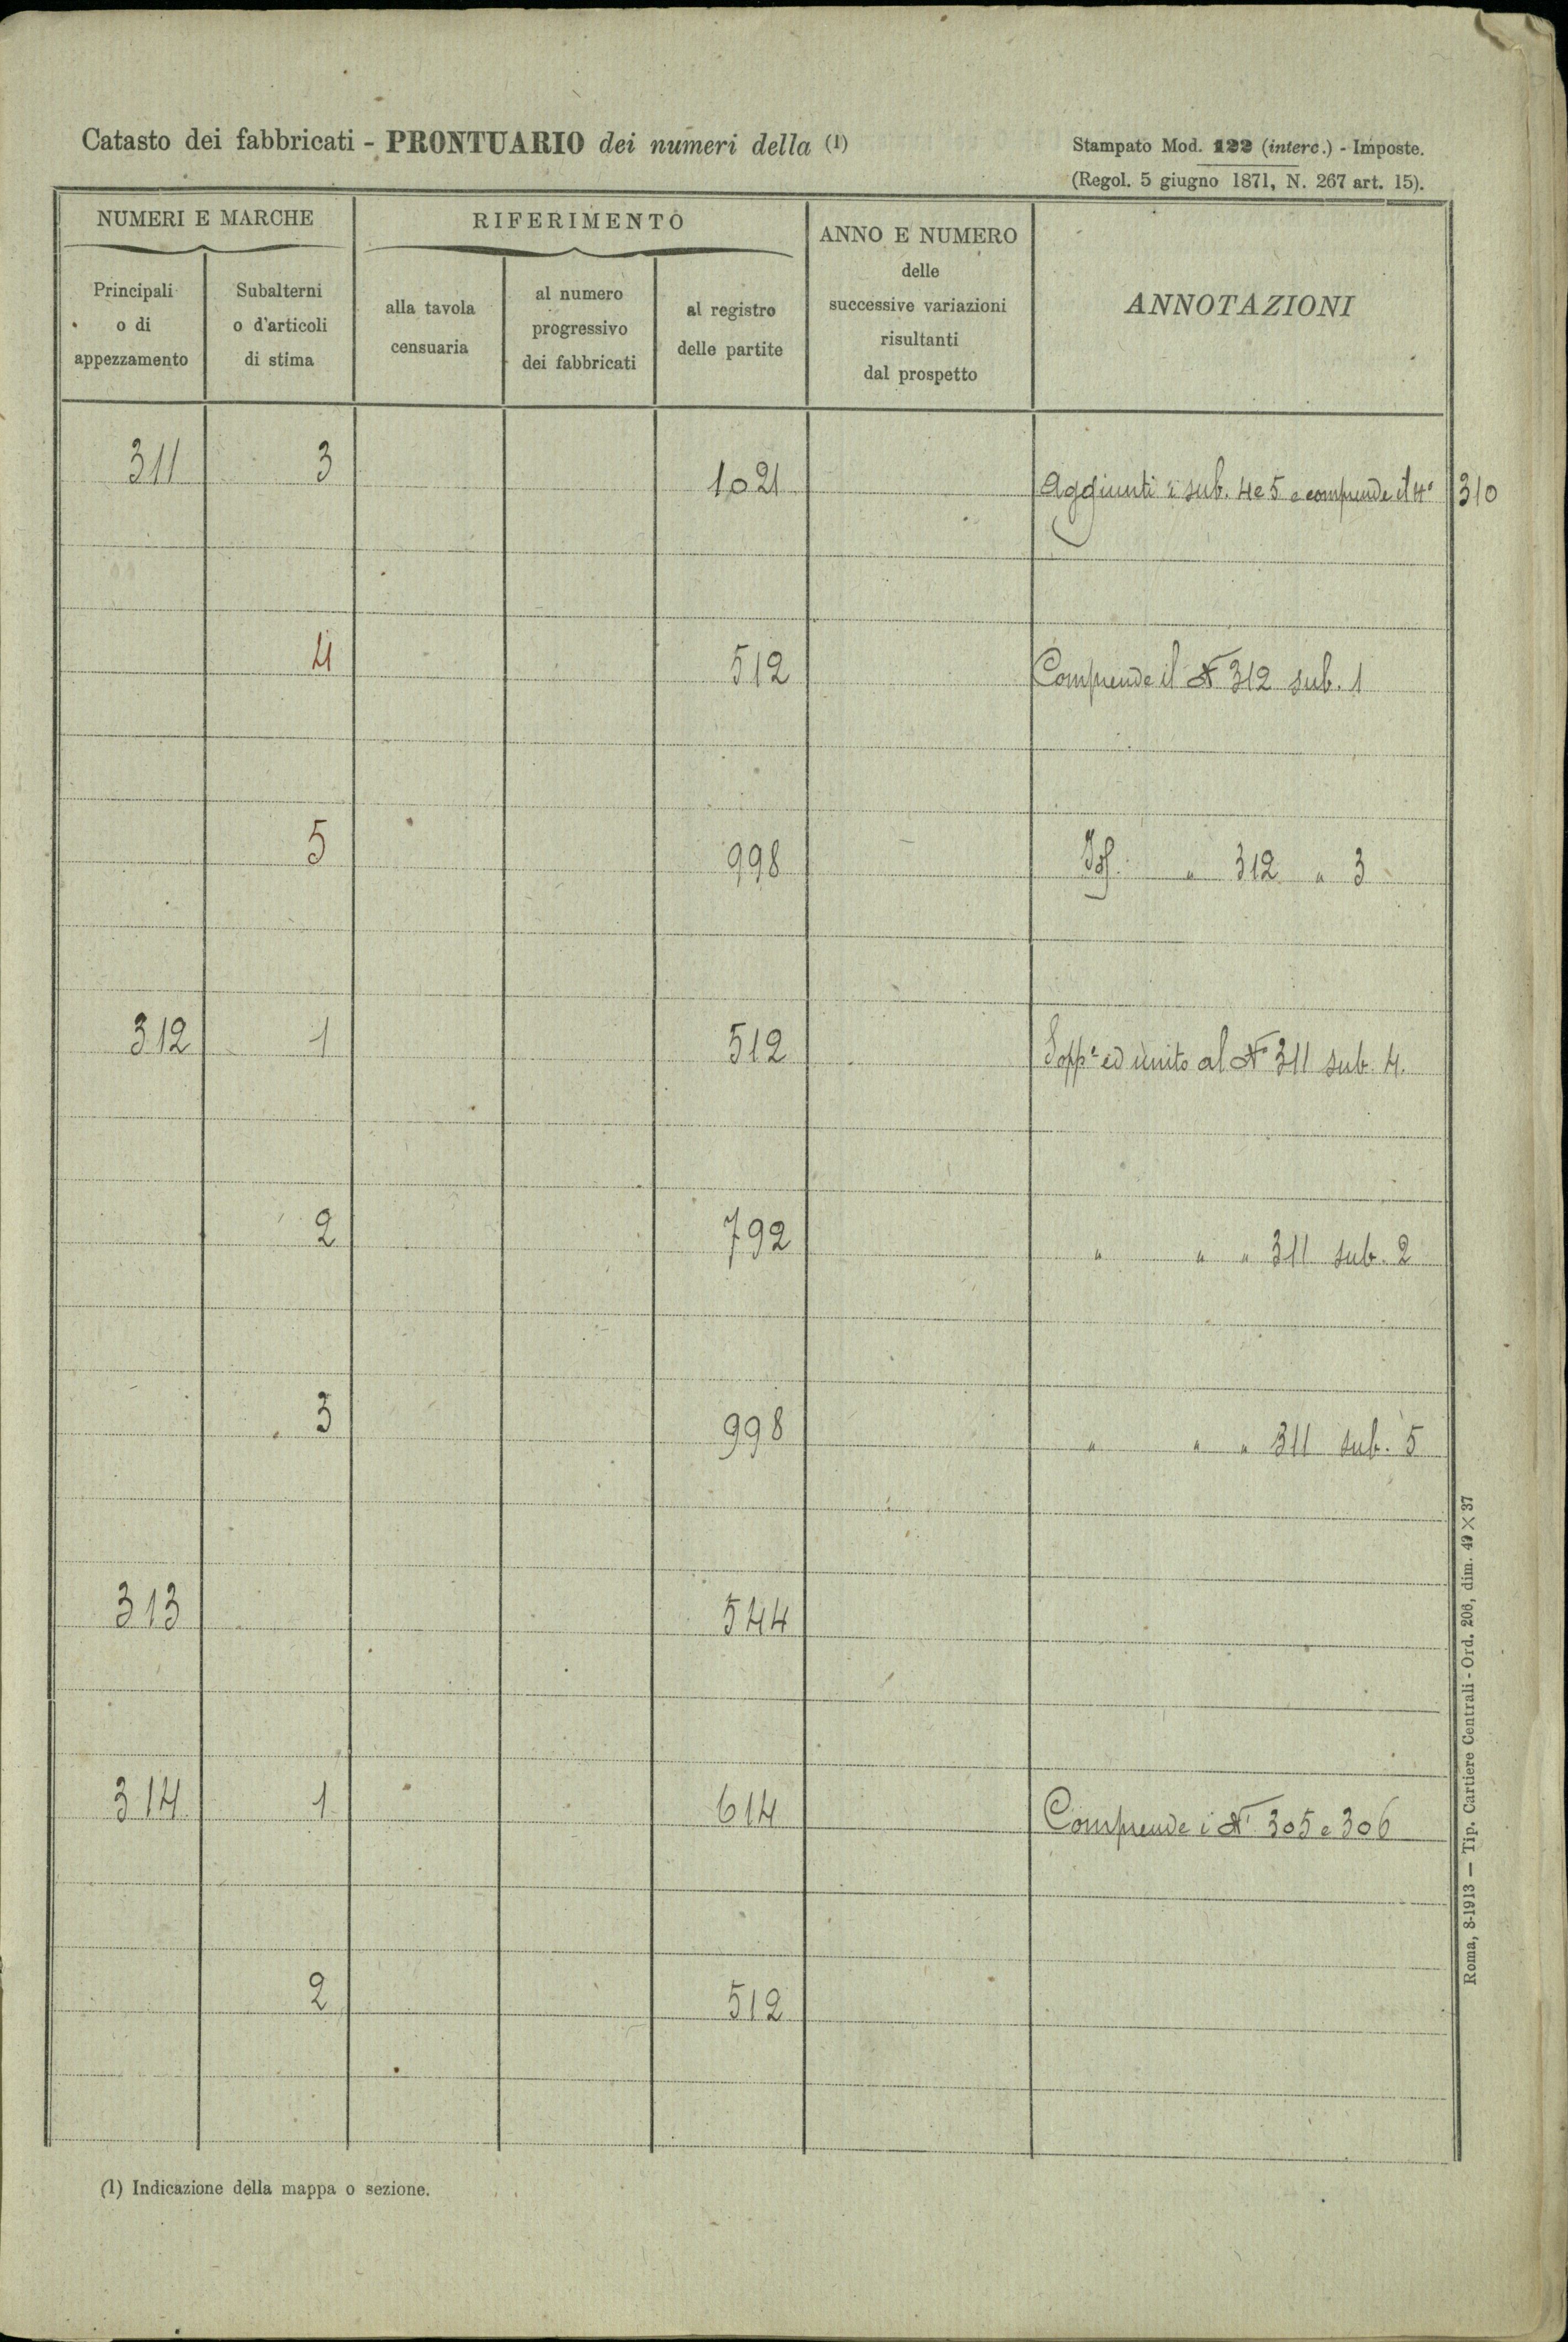 Catasto dei fabbricati - PRONTUARIO dei numeri della (1)
Stampato Mod. 122 (interc.) - Imposte.
(Regol. 5 giugno 1871, N. 267 art. 15).
NUMERI E MARCHE
RIFERIMENTO
ANNO E NUMERO
delle
successive variazioni
risultanti
dal prospetto
ANNOTAZIONI
Principali
o di
appezzamento
Subalterni
o d'articoli
di stima
alla tavola
censuaria
al numero
progressivo
dei fabbricati
al registro
delle partite
311 3 1021 Aggiunti i sub. 4 e 5 e comprende il N° 310
4 512 Comprende il N 312 sub. 1
5 998 Id. " 312 " 3
312 1 512 Sopp° ed unito al N 311 sub. 4.
2 792 " " " 311 sub. 2
3 998 " " " 311 sub. 5
313 544
314 1 614 Comprende i Ni 305 e 306
2 512
(1) Indicazione della mappa o sezione.
Roma, 8-1913 — Tip. Cartiere Centrali - Ord. 206, dim. 49 × 37